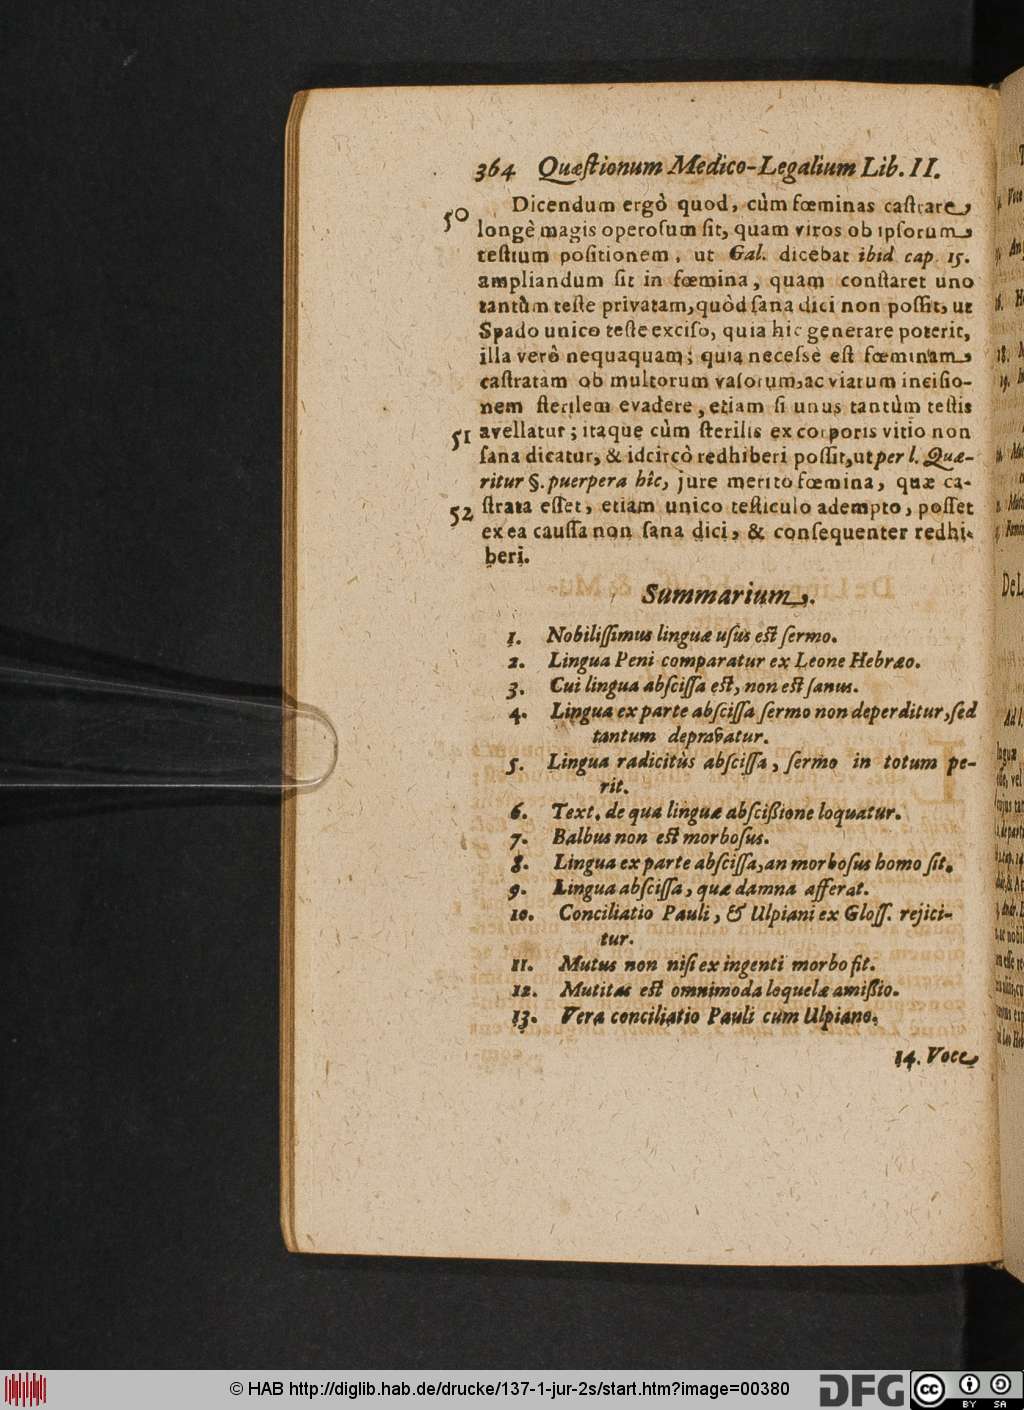 364 Quæſtionum Medico-Legalium Lib. II.
50 Dicendum ergò quod, cùm fœminas caſtrare,
longè magis operoſum ſit, quam viros ob ipſorum,
teſtium poſitionem, ut Gal. dicebat ibid cap. 15.
ampliandum ſit in fœmina, quam conſtaret uno
tantùm teſte privatam, quòd ſana dici non poſſit, ut
Spado unico teſte exciſo, quia hic generare poterit,
illa verò nequaquam; quia neceſsè eſt fœminam,
caſtratam ob multorum vaſorum, ac viarum inciſio-
nem ſterilem evadere, etiam ſi unus tantùm teſtis
51 avellatur; itaque cùm ſterilis ex corporis vitio non
ſana dicatur, & idcircò redhiberi poſſit, ut per l. Quæ-
ritur §. puerpera hîc, jure merito fœmina, quæ ca-
52 ſtrata eſſet, etiam unico teſticulo adempto, poſſet
ex ea cauſſa non ſana dici, & conſequenter redhi-
beri.
Summarium.
1. Nobiliſſimus linguæ uſus eſt ſermo.
2. Lingua Peni comparatur ex Leone Hebræo.
3. Cui lingua abſciſſa eſt, non eſt ſanus.
4. Lingua ex parte abſciſſa ſermo non deperditur, ſed
tantum depravatur.
5. Lingua radicitùs abſciſſa, ſermo in totum pe-
rit.
6. Text. de qua linguæ abſcißione loquatur.
7. Balbus non eſt morboſus.
8. Lingua ex parte abſciſſa, an morboſus homo ſit.
9. Lingua abſciſſa, quæ damna afferat.
10. Conciliatio Pauli, & Ulpiani ex Gloſſ. rejici-
tur.
11. Mutus non niſi ex ingenti morbo fit.
12. Mutitas eſt omnimoda loquelæ amißio.
13. Vera conciliatio Pauli cum Ulpiano.
14. Voce
© HAB http://diglib.hab.de/drucke/137-1-jur-2s/start.htm?image=00380
DFG
cc BY SA